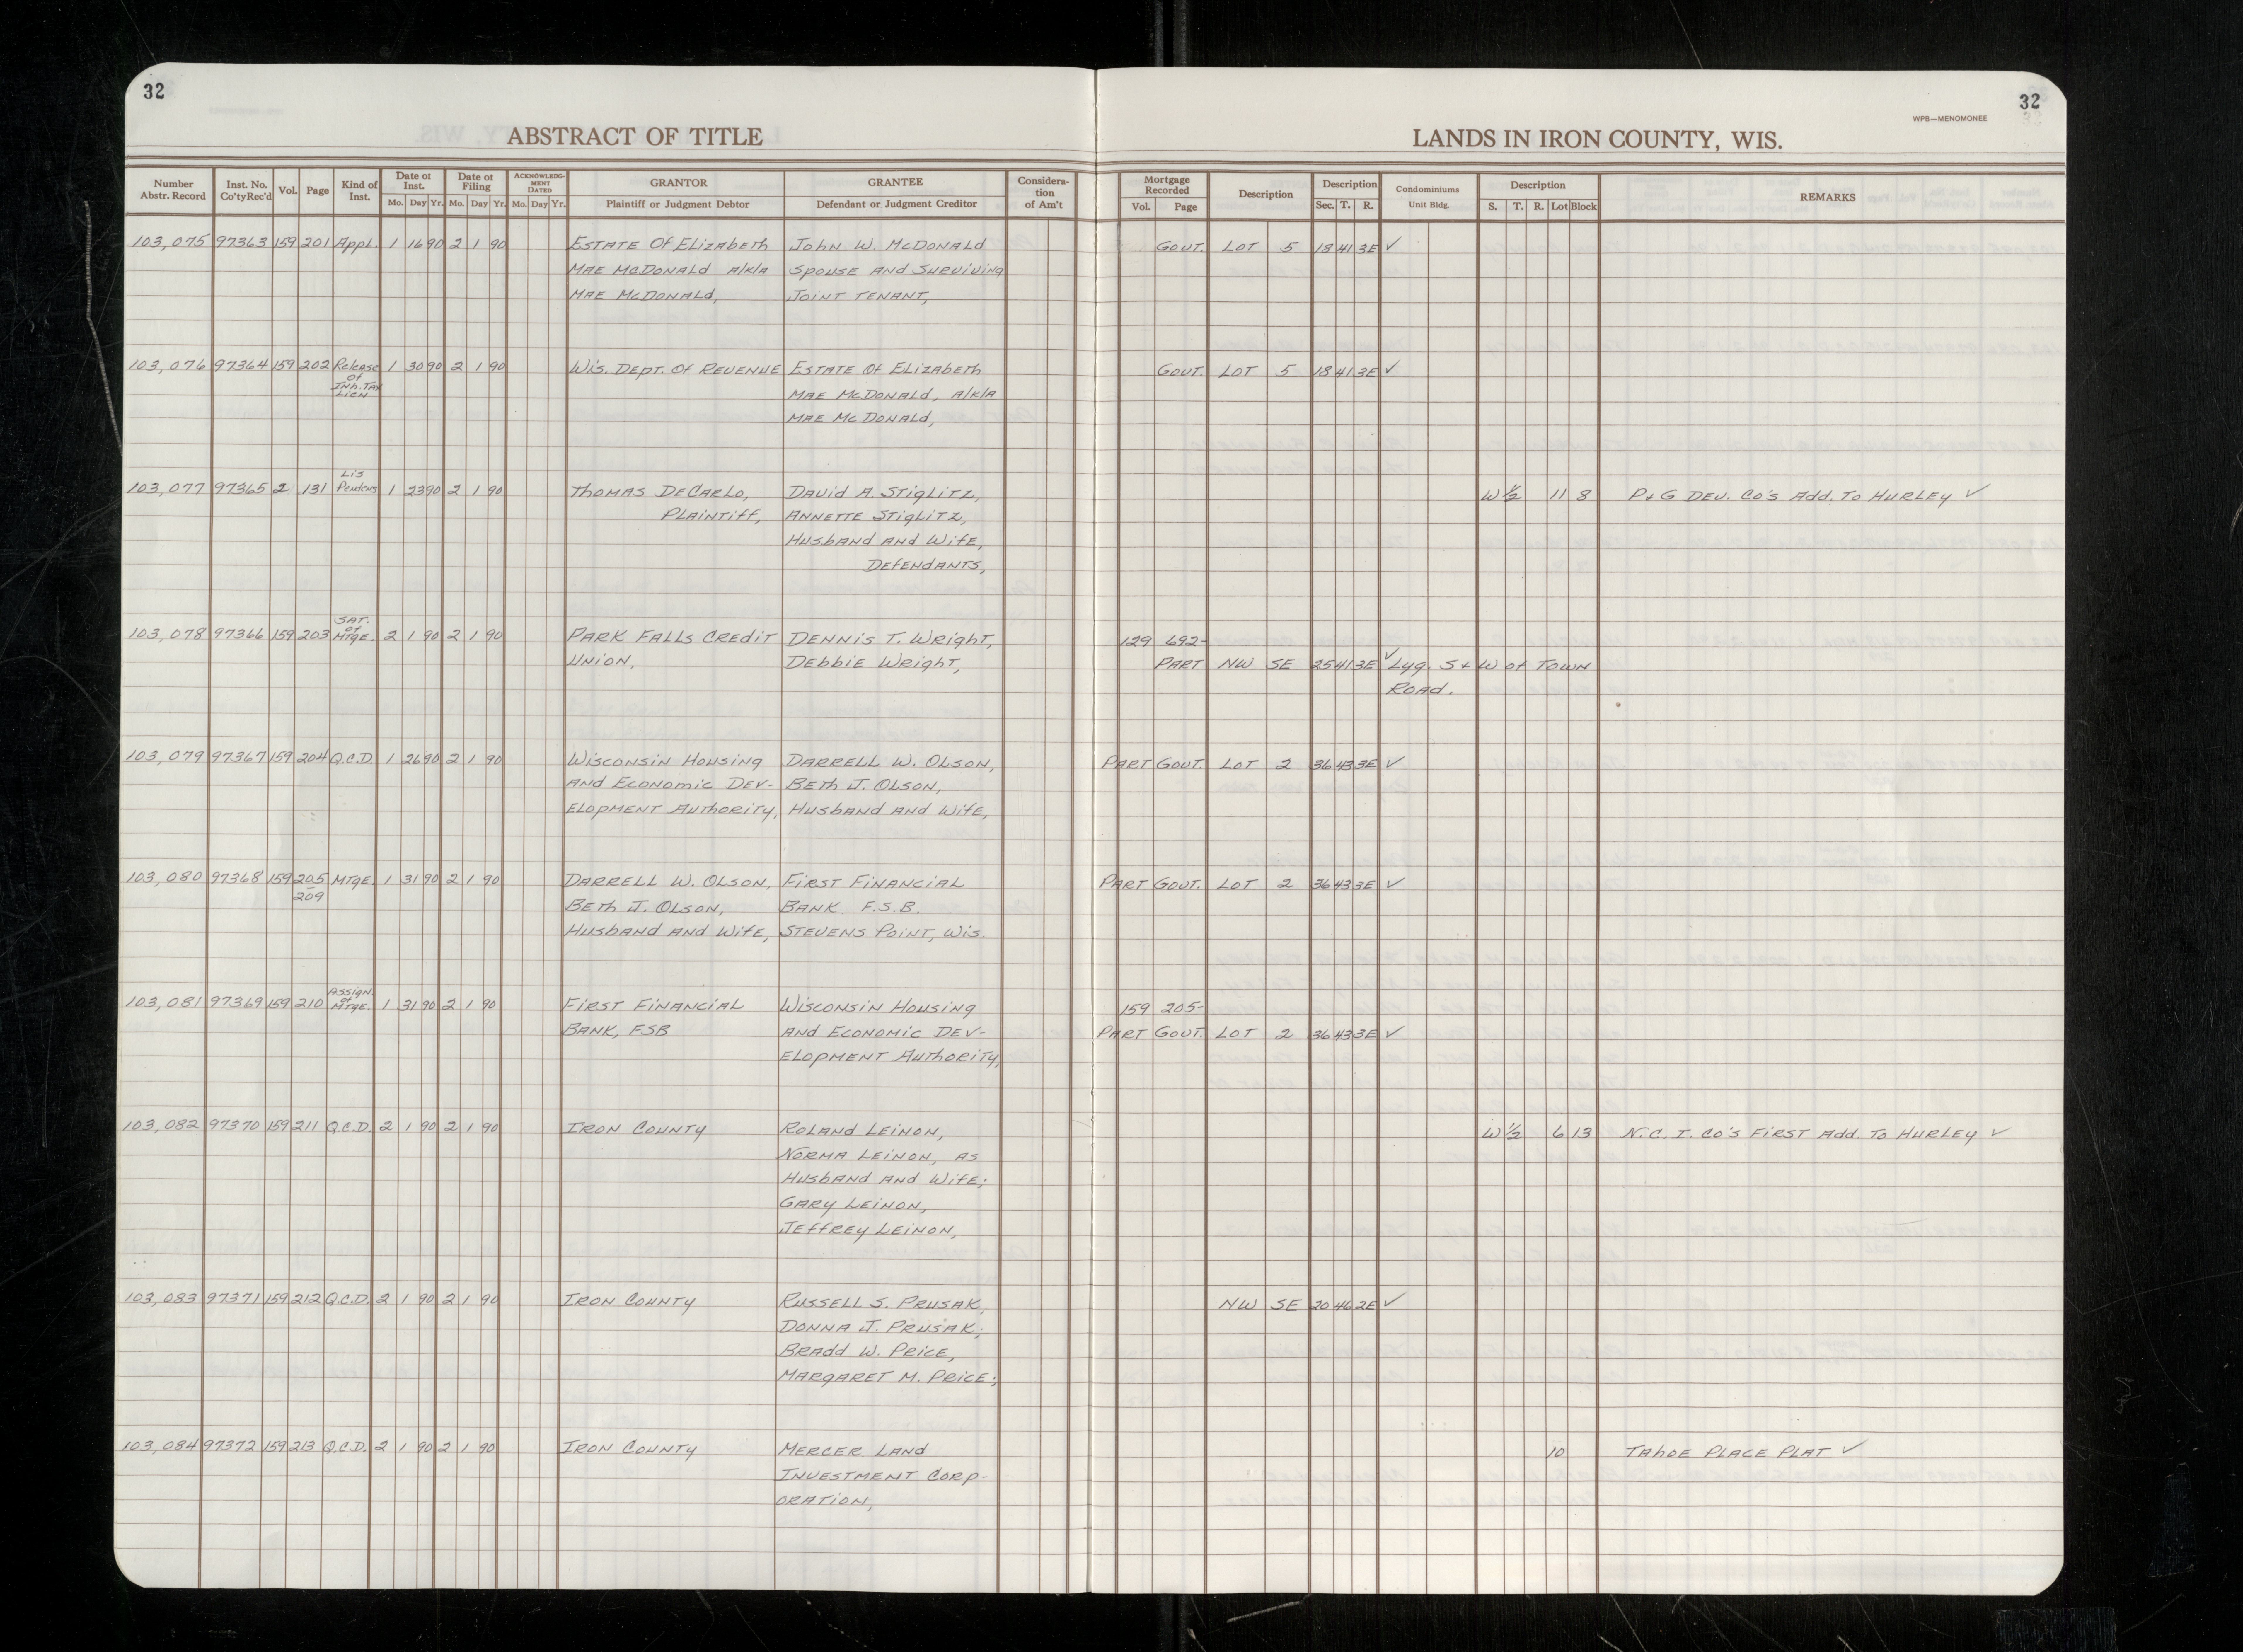 32
32
WPB—MENOMONEE
ABSTRACT OF TITLE
LANDS IN IRON COUNTY, WIS.
Number Abstr. Record | Inst. No. Co'ty Rec'd | Vol. | Page | Kind of Inst. | Date of Inst. Mo. Day Yr. | Date of Filing Mo. Day Yr. | ACKNOWLEDGMENT DATED Mo. Day Yr. | GRANTOR Plaintiff or Judgment Debtor | GRANTEE Defendant or Judgment Creditor | Consideration of Am't | Mortgage Recorded Vol. Page | Description | Description Sec. T. R. | Condominiums Unit Bldg. | Description S. T. R. Lot Block | REMARKS
103,075 97363 159 201 Appl. 1 16 90 2 1 90 Estate Of Elizabeth John W. McDonald Govt. Lot 5 18 41 3E ✓
Mae McDonald a/k/a Spouse and Surviving
Mae McDonald, Joint Tenant,
103,076 97364 159 202 Release 1 30 90 2 1 90 Wis. Dept. Of Revenue Estate Of Elizabeth Govt. Lot 5 18 41 3E ✓
Of
Inh. Tax Mae McDonald, a/k/a
Lien
Mae McDonald,
Lis
103,077 97365 2 131 Pendens 1 23 90 2 1 90 Thomas DeCarlo, David A. Stiglitz, W 1/2 11 8 P & G Dev. Co's Add. To Hurley ✓
Plaintiff, Annette Stiglitz,
Husband and Wife,
Defendants,
Sat.
of
103,078 97366 159 203 Mtge. 2 1 90 2 1 90 Park Falls Credit Dennis T. Wright, 129 692-
Union, Debbie Wright, Part NW SE 25 41 3E ✓ Lyg. S & W of Town
Road.
103,079 97367 159 204 Q.C.D. 1 26 90 2 1 90 Wisconsin Housing Darrell W. Olson, Part Govt. Lot 2 36 43 3E ✓
and Economic Dev- Beth J. Olson,
elopment Authority, Husband and Wife,
103,080 97368 159 205 Mtge. 1 31 90 2 1 90 Darrell W. Olson, First Financial Part Govt. Lot 2 36 43 3E ✓
-
209
Beth J. Olson, Bank F.S.B.
Husband and Wife, Stevens Point, Wis.
Assign.
of
103,081 97369 159 210 Mtge. 1 31 90 2 1 90 First Financial Wisconsin Housing 159 205-
Bank, FSB and Economic Dev- Part Govt. Lot 2 36 43 3E ✓
elopment Authority,
103,082 97370 159 211 Q.C.D. 2 1 90 2 1 90 Iron County Roland Leinon, W 1/2 6 13 N.C.I. Co's First Add. To Hurley ✓
Norma Leinon, as
Husband and Wife;
Gary Leinon,
Jeffrey Leinon,
103,083 97371 159 212 Q.C.D. 2 1 90 2 1 90 Iron County Russell S. Prusak, NW SE 20 46 2E ✓
Donna J. Prusak;
Bradd W. Price,
Margaret M. Price;
103,084 97372 159 213 Q.C.D. 2 1 90 2 1 90 Iron County Mercer Land 10 Tahoe Place Plat ✓
Investment Corp-
oration,